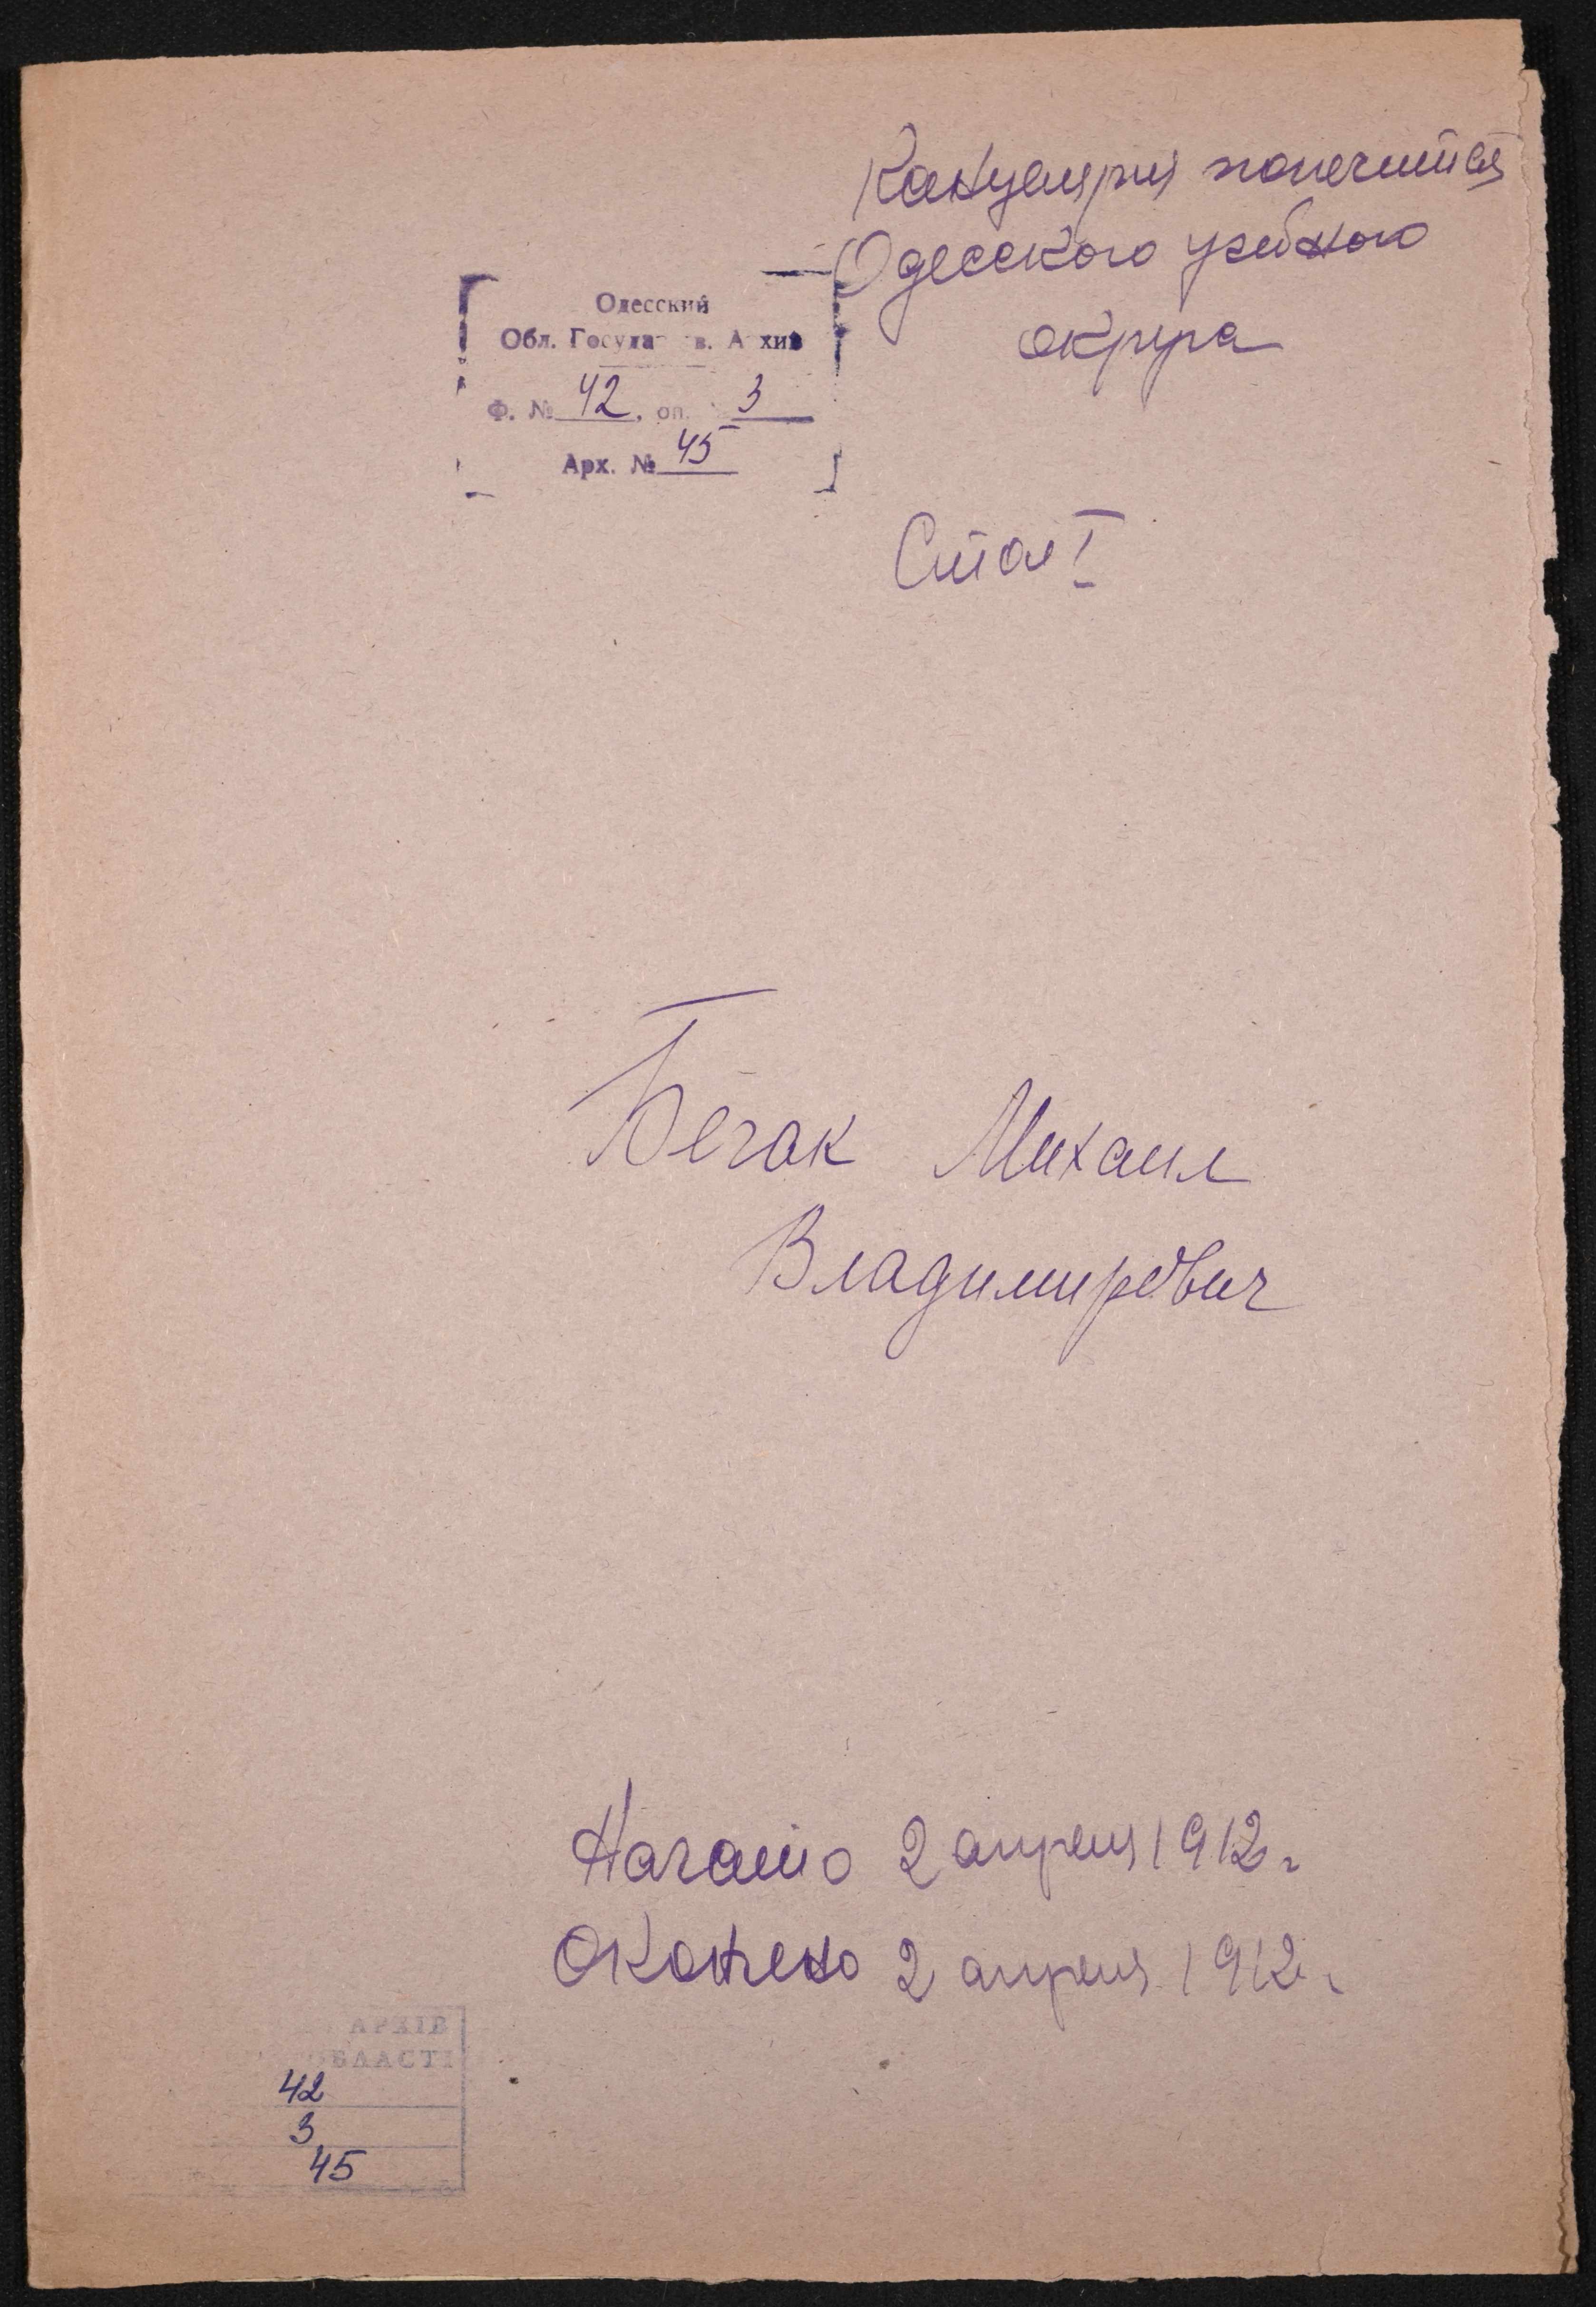 Канцелярия попечителя
Одесского учебного
округа
Одесский
Обл. Государств. Архив
Ф. № 42, оп. 3
Арх. № 45
Стол I
Бегак Михаил
Владимирович
Начато 2 апреля 1912 г.
Окончено 2 апреля 1912 г.
АРХІВ
ОБЛАСТІ
42
3
45